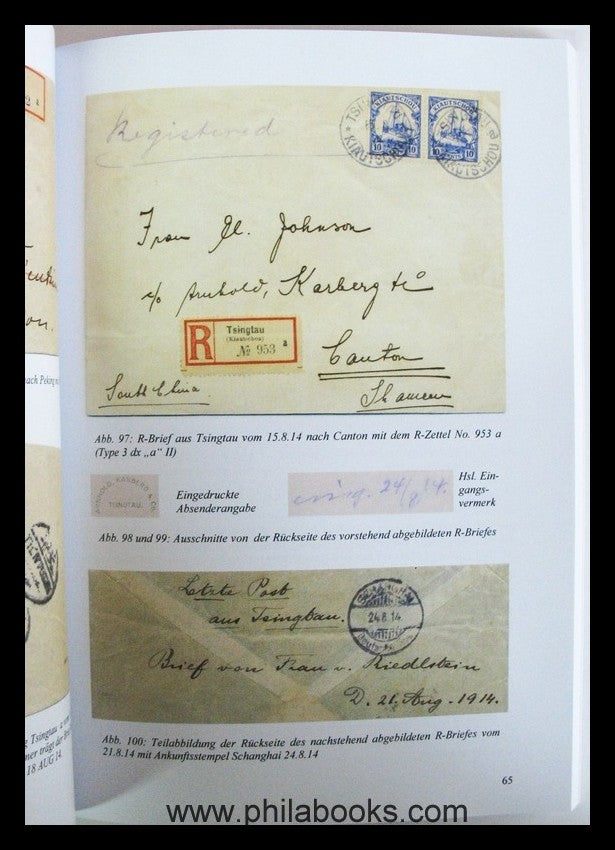 Registered
KIAUTSCHOU
KIAUTSCHOU
10 10
10
KIAUTSCHOU
Frau M. Johnson
c/o Arnhold, Karberg & Co
R
Tsingtau
(Kiautschou)
№ 953 a
Canton
South China
Shameen
Abb. 97: R-Brief aus Tsingtau vom 15.8.14 nach Canton mit dem R-Zettel No. 953 a
(Type 3 dx „a“ II)
ARNHOLD, KARBERG & CO.
TSINGTAU.
Eingedruckte
Absenderangabe
eing. 24/8 14.
Hsl. Ein-
gangs-
vermerk
Abb. 98 und 99: Ausschnitte von der Rückseite des vorstehend abgebildeten R-Briefes
Letzte Post
aus Tsingtau.
24.8.14
Brief von Frau v. Riedlstein
D. 21. Aug. 1914.
Abb. 100: Teilabbildung der Rückseite des nachstehend abgebildeten R-Briefes vom
21.8.14 mit Ankunftsstempel Schanghai 24.8.14
65
nach Peking
Tsingtau
18 AUG 14.
www.philabooks.com